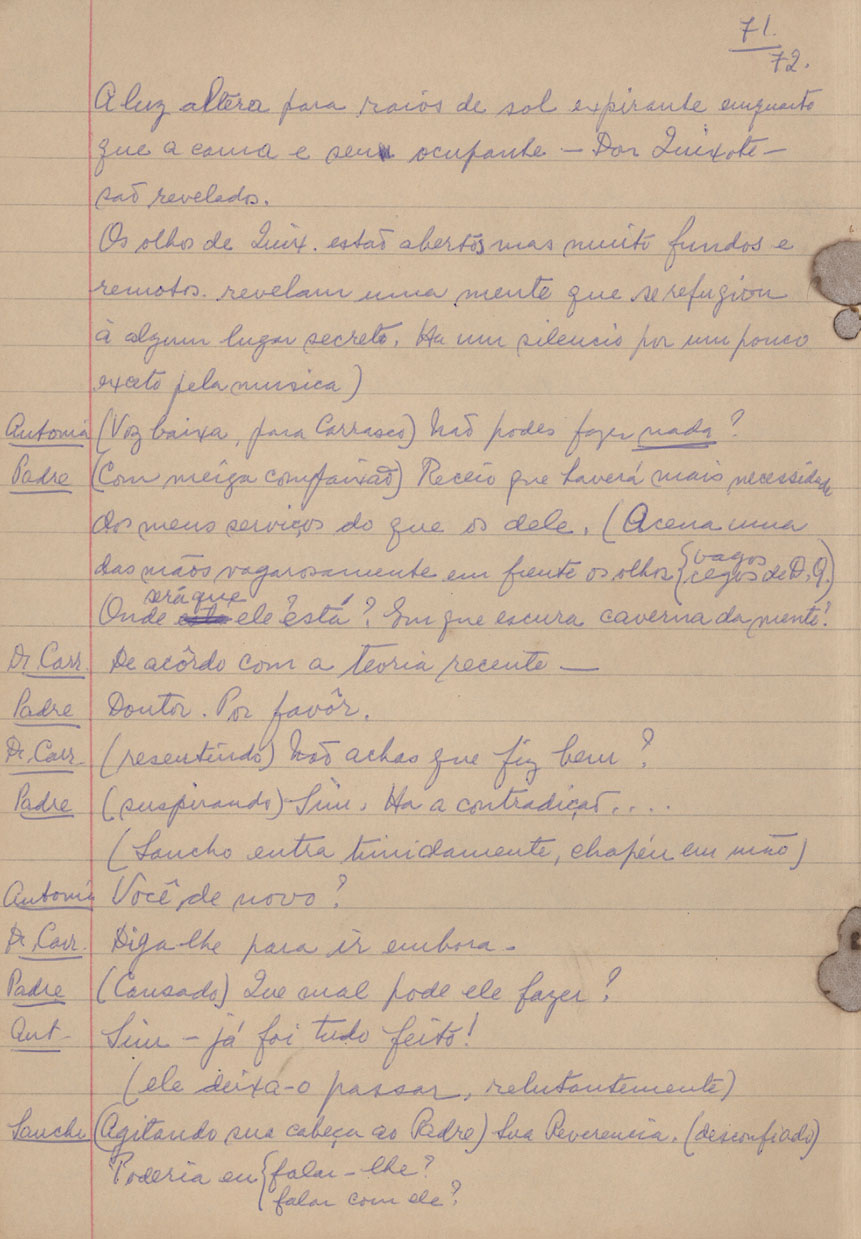 71.
72.
A luz altera para raios de sol expirante emquanto
que a cama e seu ocupante — Don Quixote —
são revelados.
Os olhos de Quix. estão abertos mas muito fundos e
remotos. revelam uma mente que se refugiou
à algum lugar secreto. Ha um silencio por um pouco
exceto pela musica)
Antonia (Voz baixa, para Carrasco) Não podes fazer nada?
Padre (Com meiga compaixão) Receio que haverá mais necessidade
dos meus serviços do que os dele. (Acena uma
das mãos vagarosamente em frente os olhos {vagos
cegos de D.Q.)
será que
Onde ele está? Em que escura caverna da mente?
Dr. Carr. De acôrdo com a teoria recente —
Padre Doutor. Por favôr.
Dr. Carr. (resentindo) Não achas que fiz bem?
Padre (suspirando) Sim. Ha a contradição....
(Sancho entra timidamente, chapéu em mão)
Antonia Você, de novo?
Dr. Carr. Diga-lhe para ir embora.
Padre (Cansado) Que mal pode ele fazer?
Ant. Sim – já foi tudo feito!
(ele deixa-o passar, relutantemente)
Sancho (Agitando sua cabeça ao Padre) Sua Reverencia. (desconfiado)
Poderia eu {falar-lhe?
falar com ele?